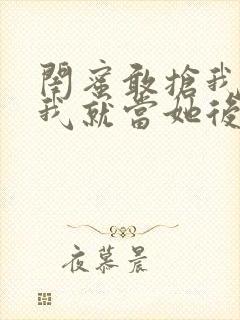 閨蜜敢搶我
我就當她後
夜慕晨